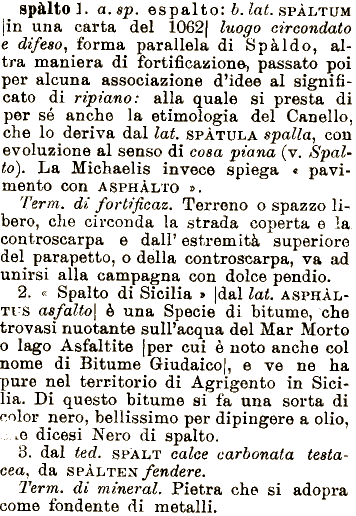 spàlto 1. a. sp. espalto: b. lat. SPÀLTUM
|in una carta del 1062| luogo circondato
e difeso, forma parallela di Spàldo, al-
tra maniera di fortificazione, passato poi
per alcuna associazione d'idee al signifi-
cato di ripiano: alla quale si presta di
per sé anche la etimologia del Canello,
che lo deriva dal lat. SPÀTULA spalla, con
evoluzione al senso di cosa piana (v. Spal-
to). La Michaelis invece spiega « pavi-
mento con ASPHÀLTO ».
Term. di fortificaz. Terreno o spazzo li-
bero, che circonda la strada coperta e la
controscarpa e dall' estremità superiore
del parapetto, o della controscarpa, va ad
unirsi alla campagna con dolce pendio.
2. « Spalto di Sicilia » |dal lat. ASPHÀL-
TUS asfalto| è una Specie di bitume, che
trovasi nuotante sull'acqua del Mar Morto
o lago Asfaltite |per cui è noto anche col
nome di Bitume Giudaico|, e ve ne ha
pure nel territorio di Agrigento in Sici-
lia. Di questo bitume si fa una sorta di
color nero, bellissimo per dipingere a olio,
e dicesi Nero di spalto.
3. dal ted. SPALT calce carbonata testa-
cea, da SPÀLTEN fendere.
Term. di mineral. Pietra che si adopra
come fondente di metalli.